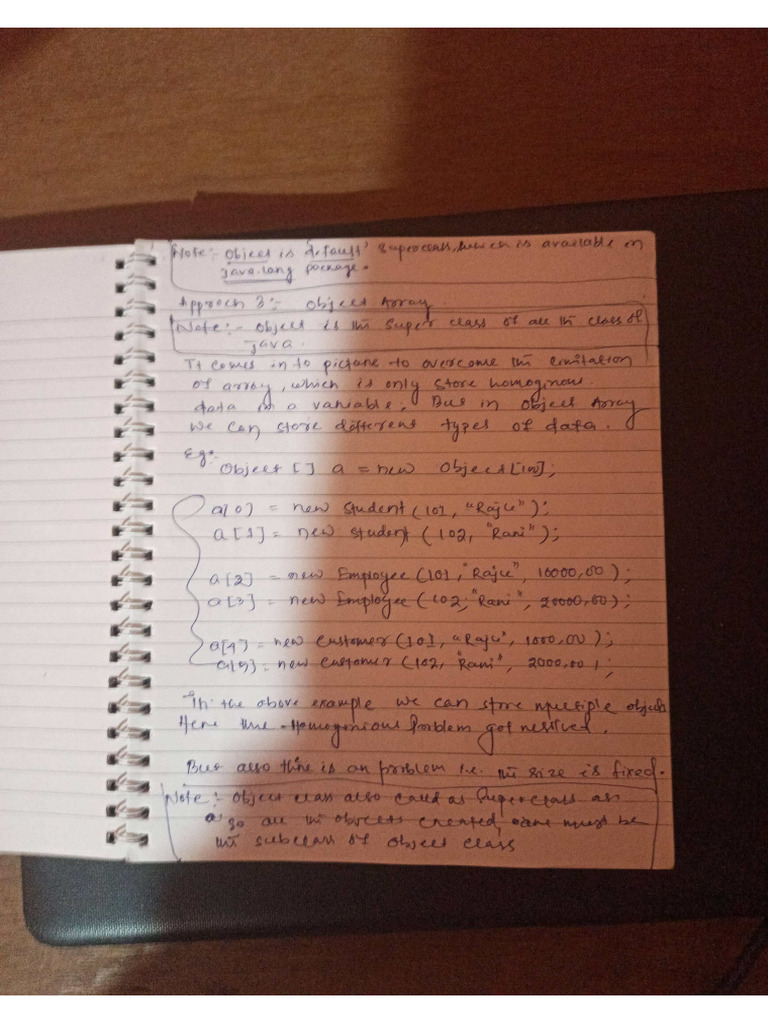 Note:- Object is default superclass, which is available in
java.lang package.
Approch 3:- Object Array.
Note:- Object is the super class of all the class of
java.
It comes in to picture to overcome the limitation
of array, which is only store homoginous
data in a variable; But in Object Array
we can store different types of data.
Eg:-
Object [] a = new Object[100];
a[0] = new Student (101, "Raju");
a[1] = new Student (102, "Rani");
a[2] = new Employee (101, "Raju", 10000,00);
a[3] = new Employee (102, "Rani", 20000,00);
a[4] = new Customer (101, "Raju", 1000,00);
a[5] = new Customer (102, "Rani", 2000,00);
In the above example we can store multiple objects
Here the Homoginious Problem got
But also there is an problem i.e. the size is fixed.
Note:- Object class also called as Superclass
so all the objects created must be
the subclass of Object class